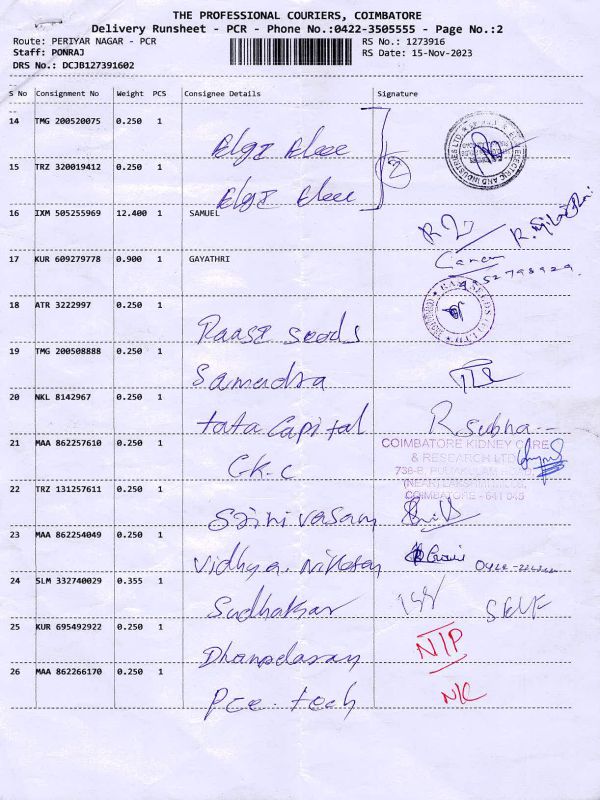 THE PROFESSIONAL COURIERS, COIMBATORE
Delivery Runsheet - PCR - Phone No.:0422-3505555 - Page No.:2
Route: PERIYAR NAGAR - PCR RS No.: 1273916
Staff: PONRAJ RS Date: 15-Nov-2023
DRS No.: DCJB127391602
S No Consignment No Weight PCS Consignee Details Signature
14 TMG 200520075 0.250 1
Elgi Elec
15 TRZ 320019412 0.250 1
Elgi Elec
2
16 IXM 505255969 12.400 1 SAMUEL
17 KUR 609279778 0.900 1 GAYATHRI
18 ATR 3222997 0.250 1
Raasi seeds
19 TMG 200508888 0.250 1
Samudra
20 NKL 8142967 0.250 1
tata Capital R. Subha
21 MAA 862257610 0.250 1
COIMBATORE KIDNEY CARE
& RESEARCH LTD
C.K.C
COIMBATORE - 641 045
22 TRZ 131257611 0.250 1
Srinivasan
23 MAA 862254049 0.250 1
Vidhya
24 SLM 332740029 0.355 1
Sudhakar SELF
25 KUR 695492922 0.250 1
N/P
26 MAA 862266170 0.250 1
Pce. tech N/C